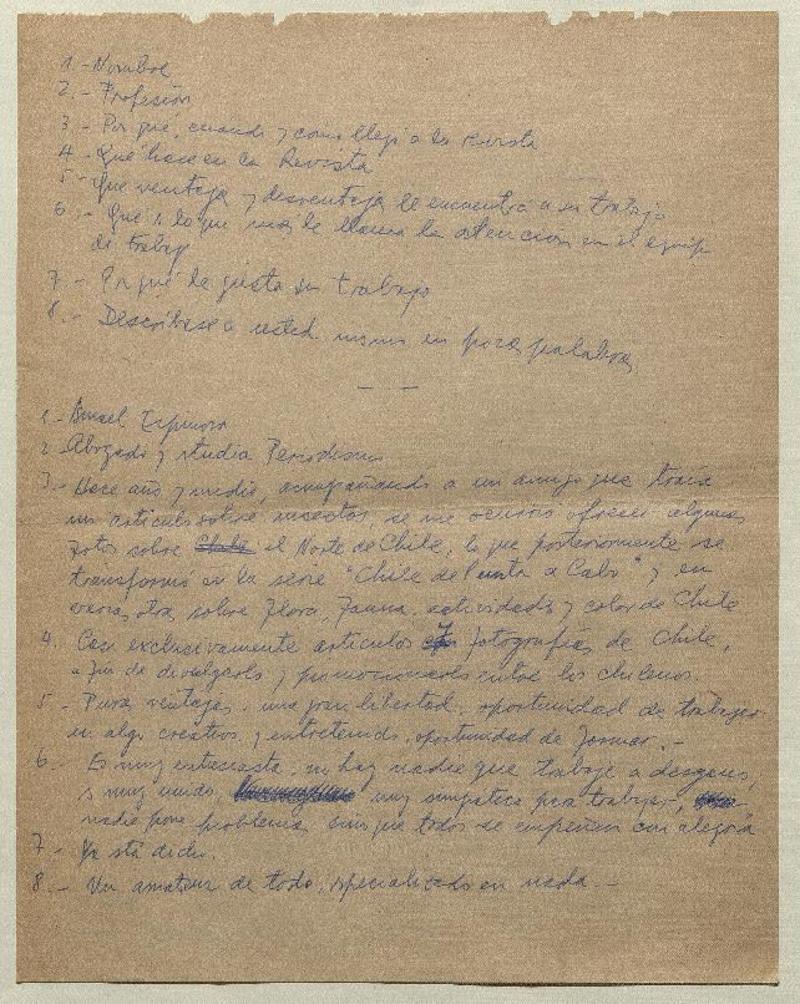 1.- Nombre
2.- Profesión
3.- Por qué, cuando y como llegó a la revista
4.- Qué hace en la Revista
5.- Que ventajas y desventajas le encuentra a su trabajo
6.- Qué es lo que más le llama la atención en el equipo
de trabajo
7.- Por qué le gusta su trabajo
8.- Descríbase a usted mismo en pocas palabras
— —
1.- Ismael Espinosa
2 Abogado y estudia Periodismo
3.- Hace año y medio, acompañando a un amigo que traía
un artículo sobre insectos, se me ocurrió ofrecer algunas
fotos sobre Chile el Norte de Chile, lo que posteriormente se
transformó en la serie "Chile de Punta a Cabo" y en
varias otras sobre Flora, Fauna, actividades y color de Chile
4. Casi exclusivamente artículos fotografías de Chile,
a fin de divulgarlo y promocionarlo entre los chilenos.
5.- Puras ventajas. una gran libertad. oportunidad de trabajar
en algo creativo y entretenido, oportunidad de formar.-
6.- Es muy entusiasta, no hay nadie que trabaje a desgano,
es muy unido, muy simpático para trabajar,
nadie pone problemas, sino que todos se empeñan con alegría
7.- Ya está dicho.
8.- Un amateur de todo, especializado en nada.-